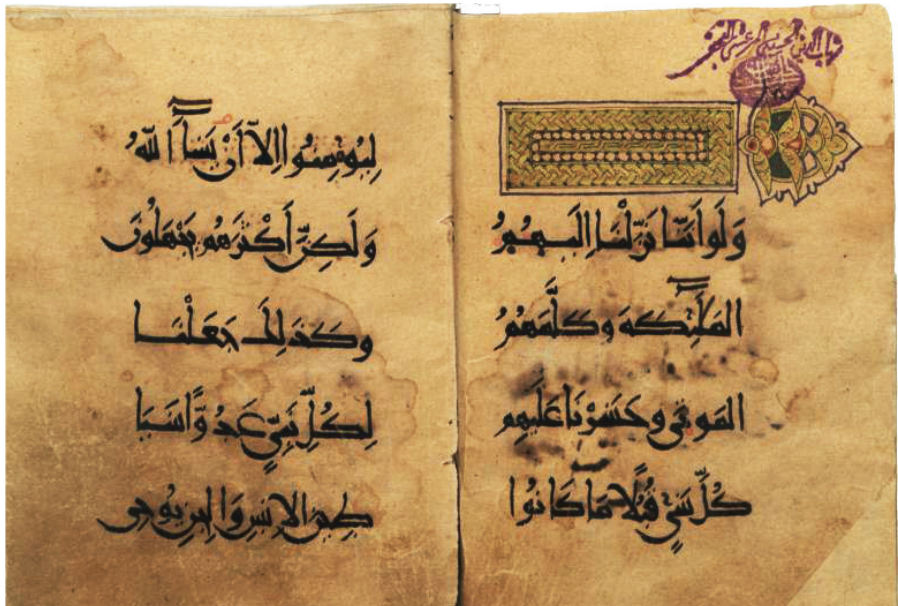 شهاب الدين الحسيني المرعشي النجفي
وَلَو أَنَّنَا نَزَّلْنَا إِلَيهِمُ
المَلَٰٓئِكَةَ وَكَلَّمَهُمُ
المَوتَى وَحَشَرْنَا عَلَيهِم
كُلَّ شَيْءٍ قُبُلًا مَّا كَانُوا
لِيُؤمِنُوا إِلَّا أَنْ يَشَآءَ اللَّهُ
وَلَكِنَّ أَكْثَرَهُم يَجْهَلُونَ
وَكَذَلِكَ جَعَلْنَا
لِكُلِّ نَبِيٍّ عَدُوًّا شَيَا
طِينَ الإِنسِ وَالجِنِّ يُوحِي